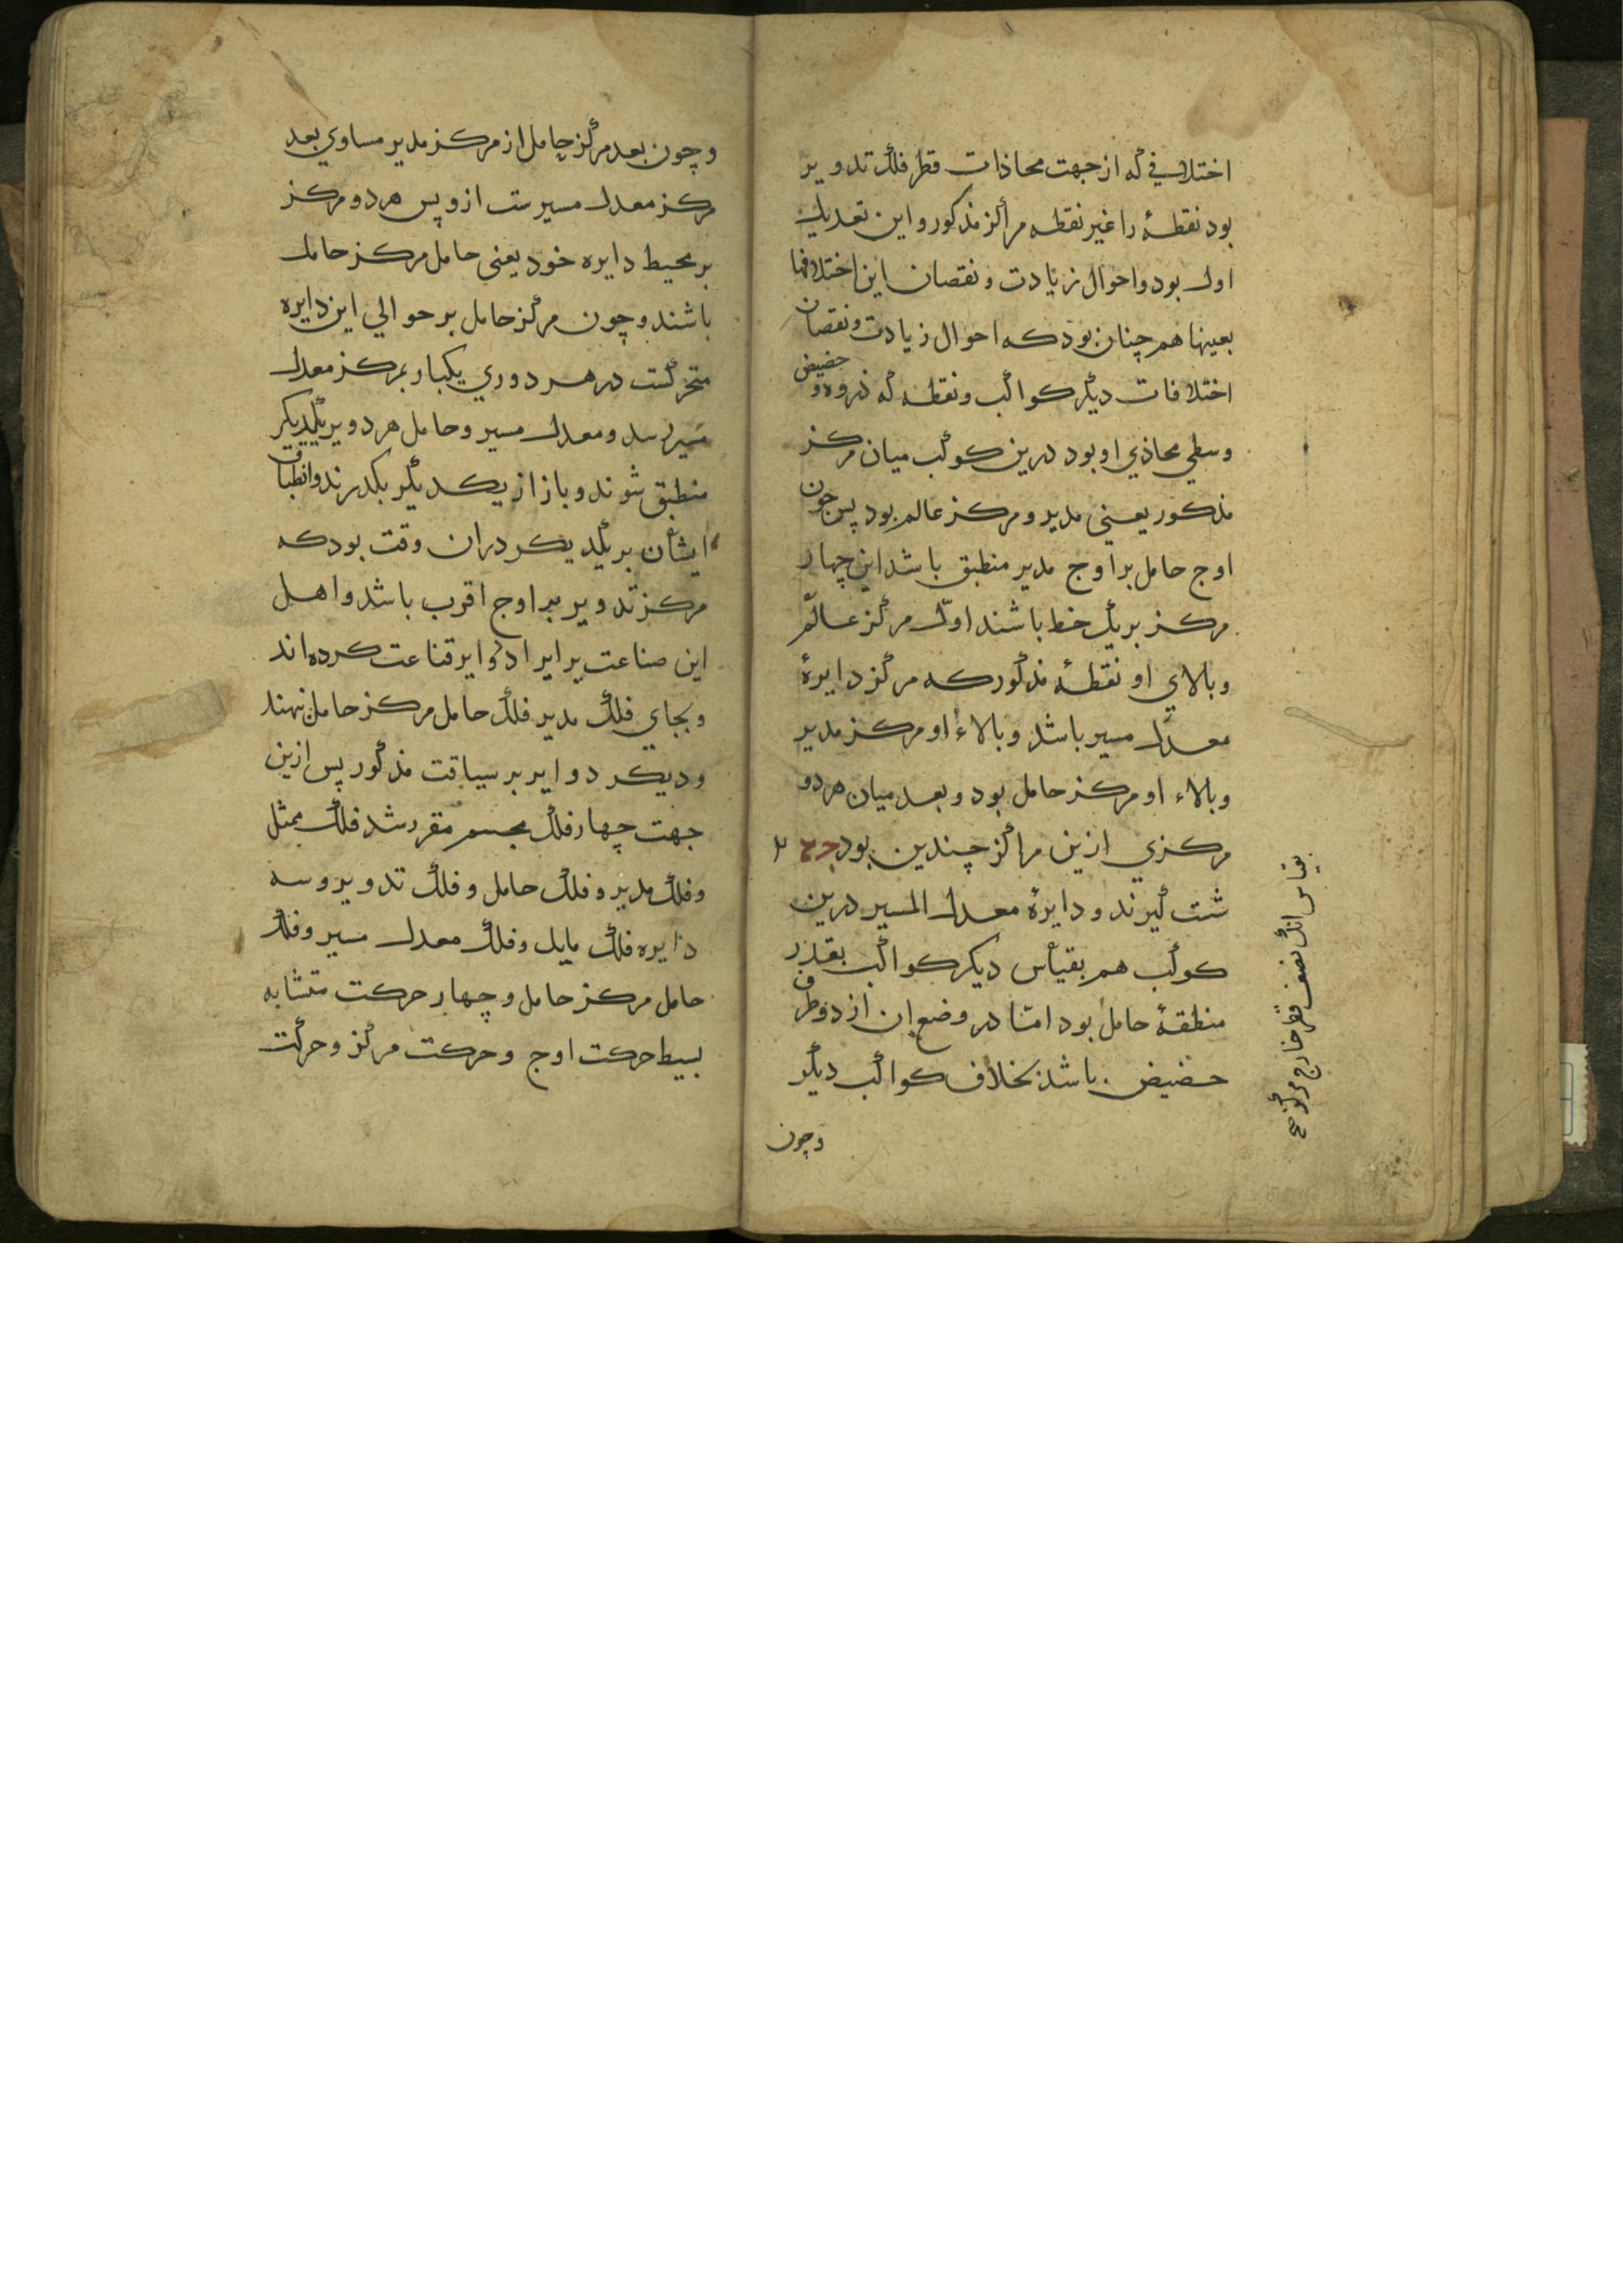 اختلافی که از جهت محاذات قطر فلک تدویر
بود نقطهٔ را غیر نقطه مراکز مذکور و این تعدیل
اول بود و احوال زیادت و نقصان این اختلافها
بعینها هم چنان بود که احوال زیادت و نقصان
اختلافات دیگر کواکب و نقطه که ذروه و حضیض
وسطی محاذی او بود درین کوکب میان مرکز
مذکور یعنی مدیر و مرکز عالم بود پس چون
اوج حامل بر اوج مدیر منطبق باشد این چهار
مرکز بر یک خط باشند اوّل مرکز عالم
و بالای او نقطهٔ مذکور که مرکز دایرهٔ
معدل مسیر باشد و بالاء او مرکز مدیر
و بالاء او مرکز حامل بود و بعد میان هر دو
مرکزی ازین مراکز چندین بود
شت گیرند و دایرهٔ معدل المسیر درین
کوکب هم بقیاس دیگر کواکب بقدر
منطقهٔ حامل بود امّا در وضع ان از دو طرف
حضیض باشد بخلاف کواکب دیگر
وچون
بقیاس انک نصف قطر خارج مرکز
و چون بعد مرکز حامل از مرکز مدیر مساوی بعد
مرکز معدل مسیر ست ازو پس هر دو مرکز
بر محیط دایره خود یعنی حامل مرکز حامل
باشند و چون مرکز حامل بر حوالی این دایره
متحرکست در هر دوری یکبار بمرکز معدل
مسیر رسد و معدل مسیر و حامل هر دو بر یکدیگر
منطبق شوند و باز از یکدیگر بگذرند و انطباق
ایشان بر یکدیگر دران وقت بود که
مرکز تدویر بر اوج اقرب باشد و اهل
این صناعت بر ایراد دوایر قناعت کرده اند
و بجای فلک مدیر فلک حامل مرکز حامل نهند
و دیگر دوایر بر سیاقت مذکور پس ازین
جهت چهار فلک مجسم مقرر شد فلک ممثل
و فلک مدیر و فلک حامل و فلک تدویر و سه
دایره فلک مایل و فلک معدل مسیر و فلک
حامل مرکز حامل و چهار حرکت متشابه
بسیط حرکت اوج و حرکت مرکز و حرکت